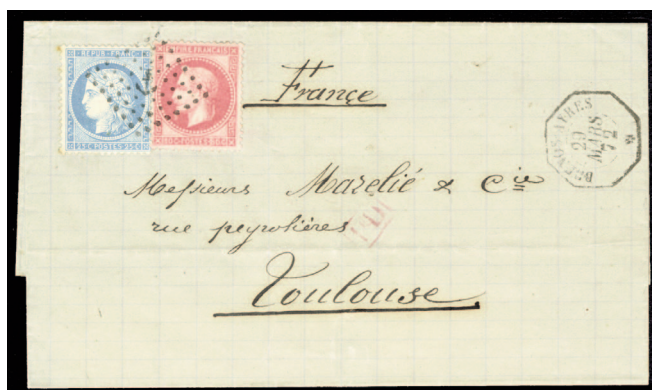 REPUB·FRANC
25 C·POSTES·25 C
EMPIRE FRANÇAIS
80 C·POSTES·80 C
France
BUENOS-AYRES
29
MARS
72
Messieurs Marelié & Cie
rue peyrolières
PD
Toulouse